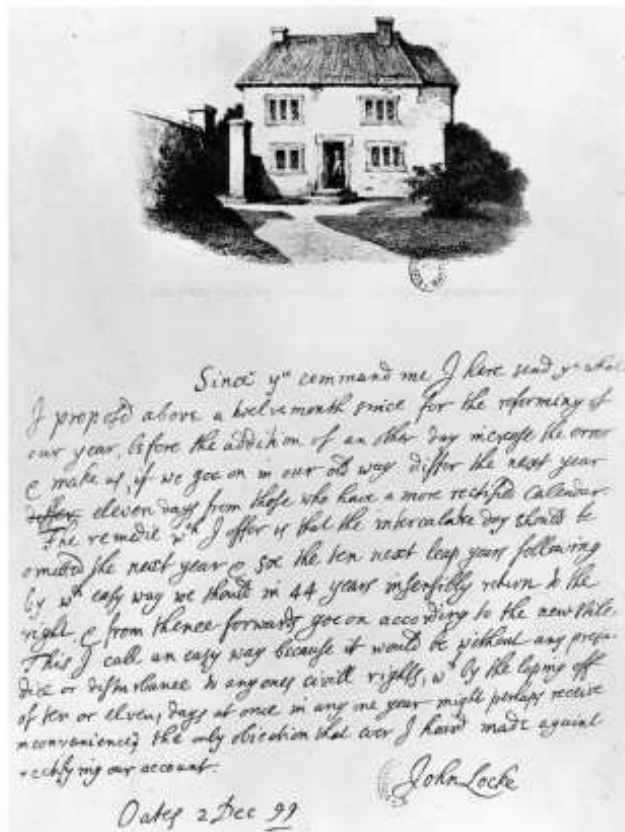 Since yu command me I here send yu what
I propos'd above a twelve month since for the reforming of
our year, before the addition of an other day increase the error
& make us, if we goe on in our old way differ the next year
differ eleven days from those who have a more rectified Calendar
The remedie wch I offer is that the intercalate day should be
omitted the next year & soe the ten next leap years following
by wch easy way we should in 44 years insensibly return to the
right & from thence forwards goe on according to the new stile
This I call an easy way because it would be without any preju
dice or disturbance to any ones civill rights, wch by the loping off
of ten or eleven days at once in any one year might perhaps receive
inconvenience, the only objection that ever I heard made against
rectifying our account.
John Locke
Oates 2 Dec 99